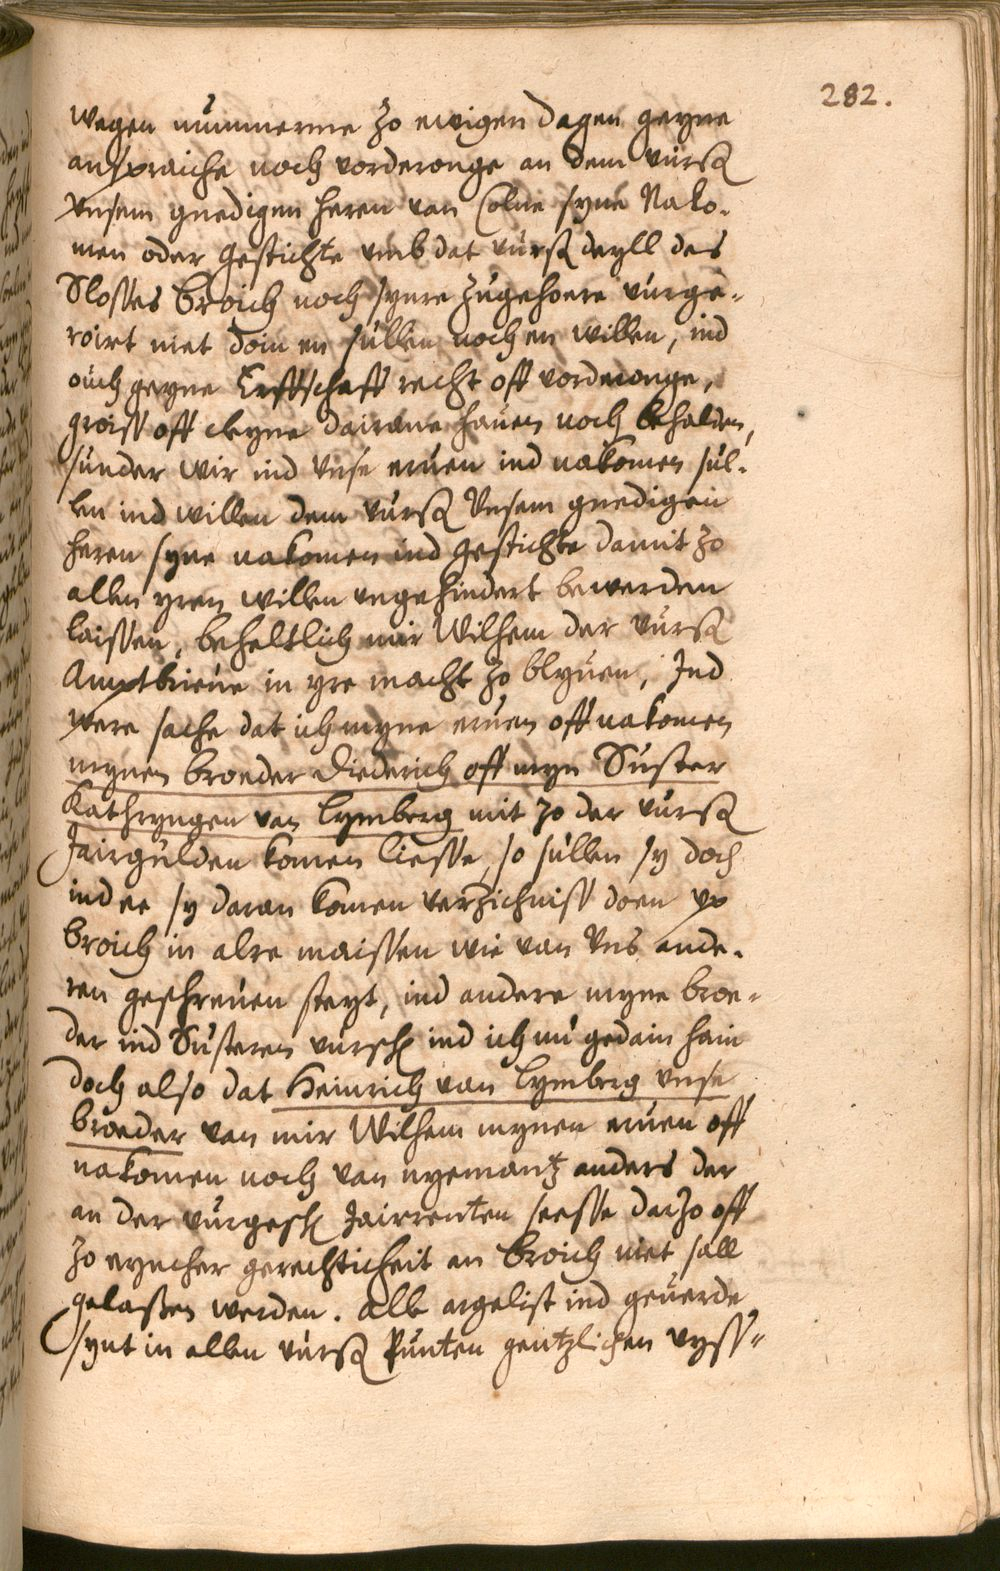 282.
wegen nummerme zo ewigen dagen geyne
anspraiche noch vorderonge an dem vurß
Unsem gnedigen heren van Colne syne Nako-
men oder Gestichte umb dat vurß deyll des
Slosses Broich noch synre zugehoere vurge-
roirt niet doin en sullen noch en willen, ind
ouch geyne Erffschafft recht off vorderonge,
groiss off cleyne dairane hauen noch behalden,
sunder wir ind Unse eruen ind nakomen sul-
len ind willen dem vurß Unsem gnedigen
heren syne nakomen ind Gestichte damit zo
allen yren willen ungehindert bewerden
laissen, beheltlich mir Wilhem der vurß
Amptbrieue in yre macht zo blyuen, Ind
were sache dat ich myne eruen off nakomen
mynen broeder Diederich off myn Suster
Kathryngen van Lymberg mit zo der vurß
Jairgulden komen liesse, so sullen sy doch
ind ee sy daran komen verzichniss doen up
Broich in alre maissen wie van Uns ande-
ren geschreuen steyt, ind andere myne broe-
der ind Susteren vursch ind ich nu gedain hain
doch also dat Heinrich van Lymberg unse
broeder van mir Wilhem mynen eruen off
nakomen noch van nyemantz anders der
an der vurgesch Jairrenten seesse darzo off
zo eyncher gerechticheit an Broich niet sall
gelaßen werden. Alle argelist ind geuerde
synt in allen vurß Punten gentzlichen uyss-